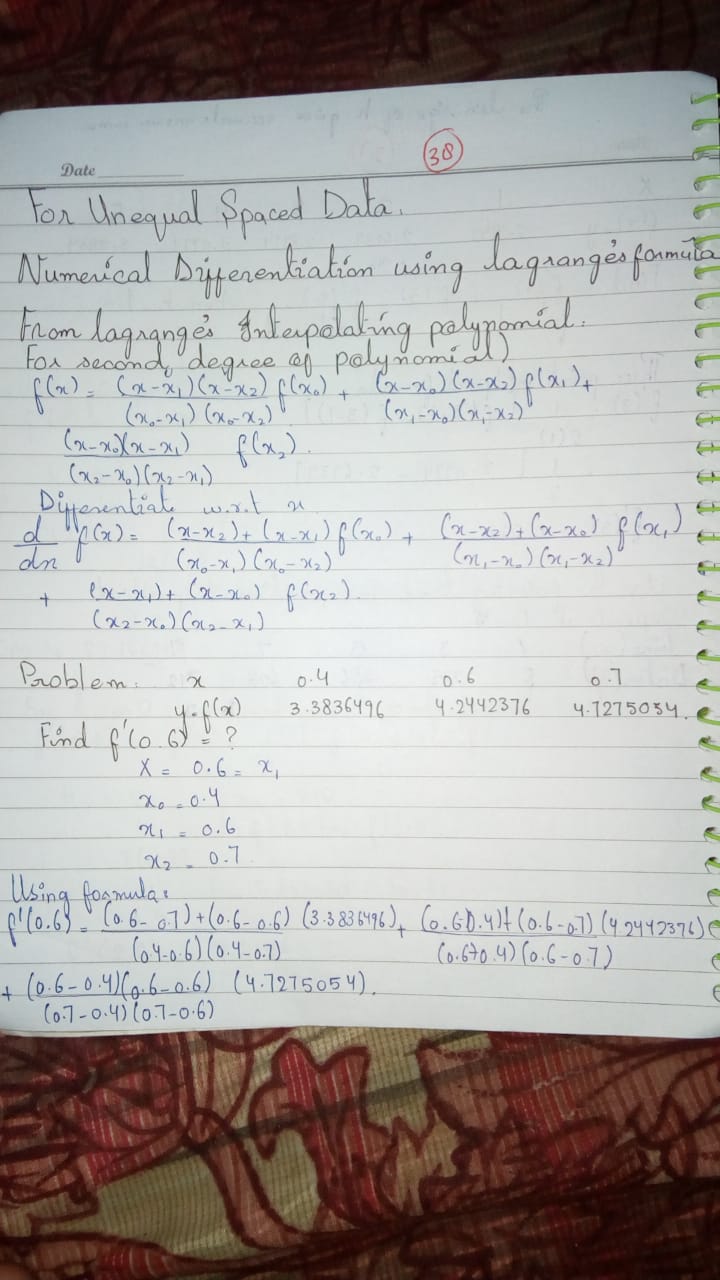 38
Date
For Unequal Spaced Data.
Numerical Differentiation using lagrange's formula
From lagrange's Interpolating polynomial.
For second degree of polynomial)
f(x) = (x-x₁)(x-x₂) f(x₀) + (x-x₀)(x-x₂) f(x₁) +
(x₀-x₁)(x₀-x₂) (x₁-x₀)(x₁-x₂)
(x-x₀)(x-x₁) f(x₂).
(x₂-x₀)(x₂-x₁)
Differentiate w.r.t x
d f(x) = (x-x₂)+(x-x₁) f(x₀) + (x-x₂)+(x-x₀) f(x₁)
dx (x₀-x₁)(x₀-x₂) (x₁-x₀)(x₁-x₂)
+ (x-x₁)+(x-x₀) f(x₂).
(x₂-x₀)(x₂-x₁)
Problem: x 0.4 0.6 0.7
y=f(x) 3.3836496 4.2442376 4.7275054.
Find f'(0.6) = ?
X = 0.6 = x₁
x₀ = 0.4
x₁ = 0.6
x₂ = 0.7
Using formula:
f'(0.6) = (0.6-0.7)+(0.6-0.6) (3.3836496) + (0.6-0.4)+(0.6-0.7) (4.2442376)
(0.4-0.6)(0.4-0.7) (0.6-0.4)(0.6-0.7)
+ (0.6-0.4)(0.6-0.6) (4.7275054).
(0.7-0.4)(0.7-0.6)